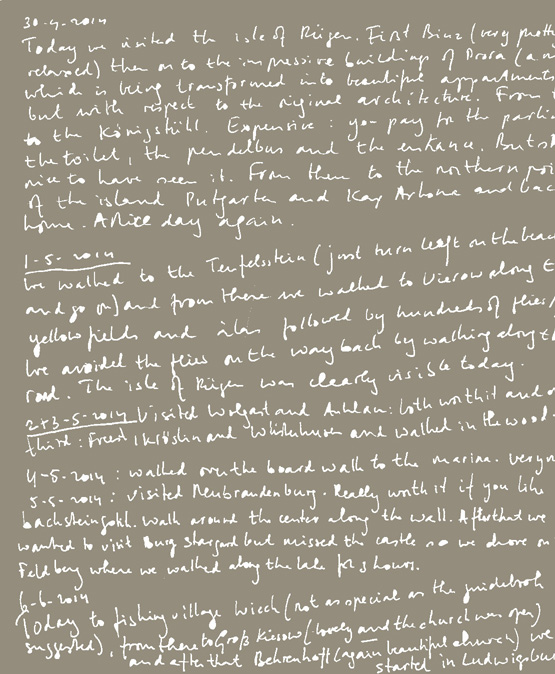 30-4-2014
Today we visited the isle of Rügen. First Binz (very
relaxed) then on to the impressive buildings of Prora (a
which is being transformed into beautiful appartments
but with respect to the original architecture. From
to the Königsstühl. Expensive: you pay for the
the toilet, the pendelbus and the entrance. But
nice to have seen it. From then to the northern
of the island Putgarten and Kap Arkona and
home. A Nice day again.
1-5-2014
We walked to the Teufelsstein (just turn left on the
and go on) and from there we walked to Vierow along
yellow fields and followed by hundreds of flies
We avoided the flies on the way back by walking along
road. The isle of Rügen was clearly visible today.
2+3-5-2014 Visited Wolgast and Anklam: both worth it and
third: Freest, Kröslin and and walked in the wood.
4-5-2014: walked over the board walk to the marina. very
5-5-2014: visited Neubrandenburg. Really worth it if you like
bachsteingoth. walk around the center along the wall. After that we
wanted to visit Burg Stargard but missed the castle so we drove on
Feldberg where we walked along the lake for 3 hours.
6-6-2014
Today to fishing village Wieck (not as special as the guidebook
suggested), from there to Groß Kiesow (lovely and the church was open)
and after that Behrenhoff (again beautiful church) we
started in Ludwigsbur